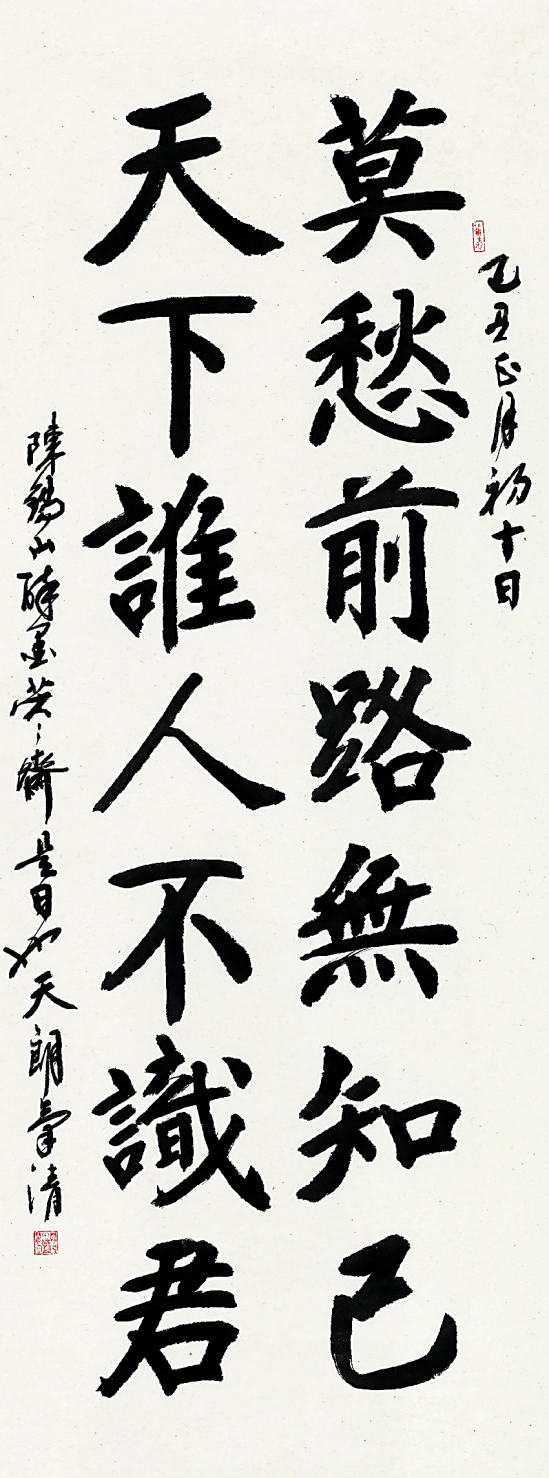 己丑正月初十日
莫愁前路無知己
天下誰人不識君
陳錫山醉墨笑〻齋是日也天朗氣清